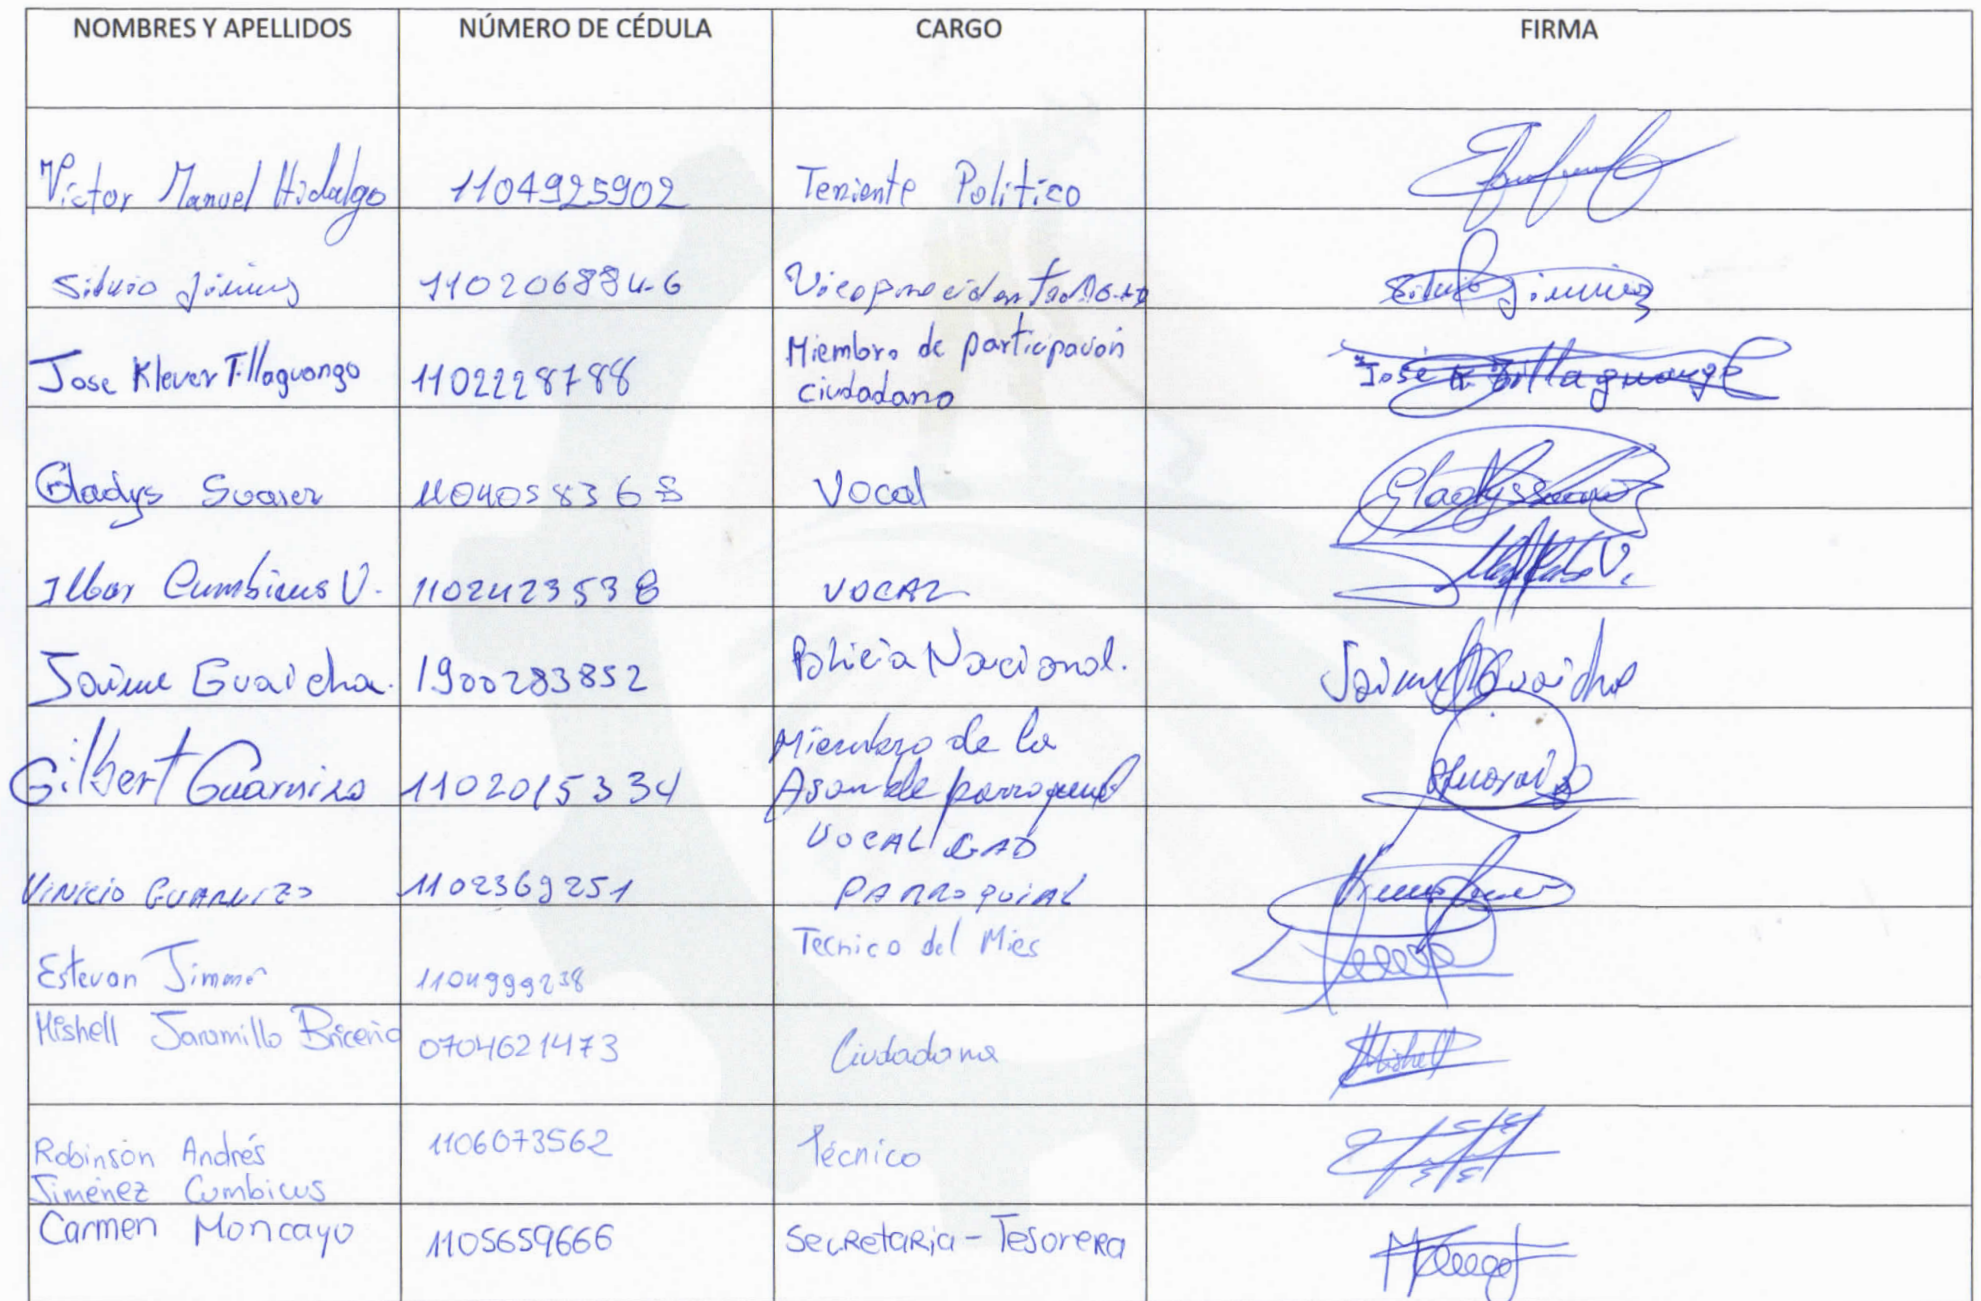 NOMBRES Y APELLIDOS NÚMERO DE CÉDULA CARGO FIRMA
Víctor Manuel Hidalgo 1104925902 Teniente Político
Silvio Jiménez 1102068846 Silvio Jiménez
Jose Klever Tillaguango 1102228788 Miembro de participación
ciudadano José K. Tillaguango
Gladys Suarez 1104058368 Vocal Gladys Suarez
Ilbar Cumbicus V. 1102423538 VOCAL
Jaime Guaicha. 1900283852 Policía Nacional. Jaime Guaicha
Gilbert Guarnizo 1102015334 Miembro de la
Asamble parroquial
Vinicio Guarnizo 1102369251 VOCAL GAD
PARROQUIAL
Estevan 1104999238 Tecnico del Mies
Mishell Jaramillo Briceño 0704621473 Ciudadana Mishell
Robinson Andrés
Jiménez Cumbicus 1106073562 Técnico
Carmen Moncayo 1105659666 Secretaria - Tesorera